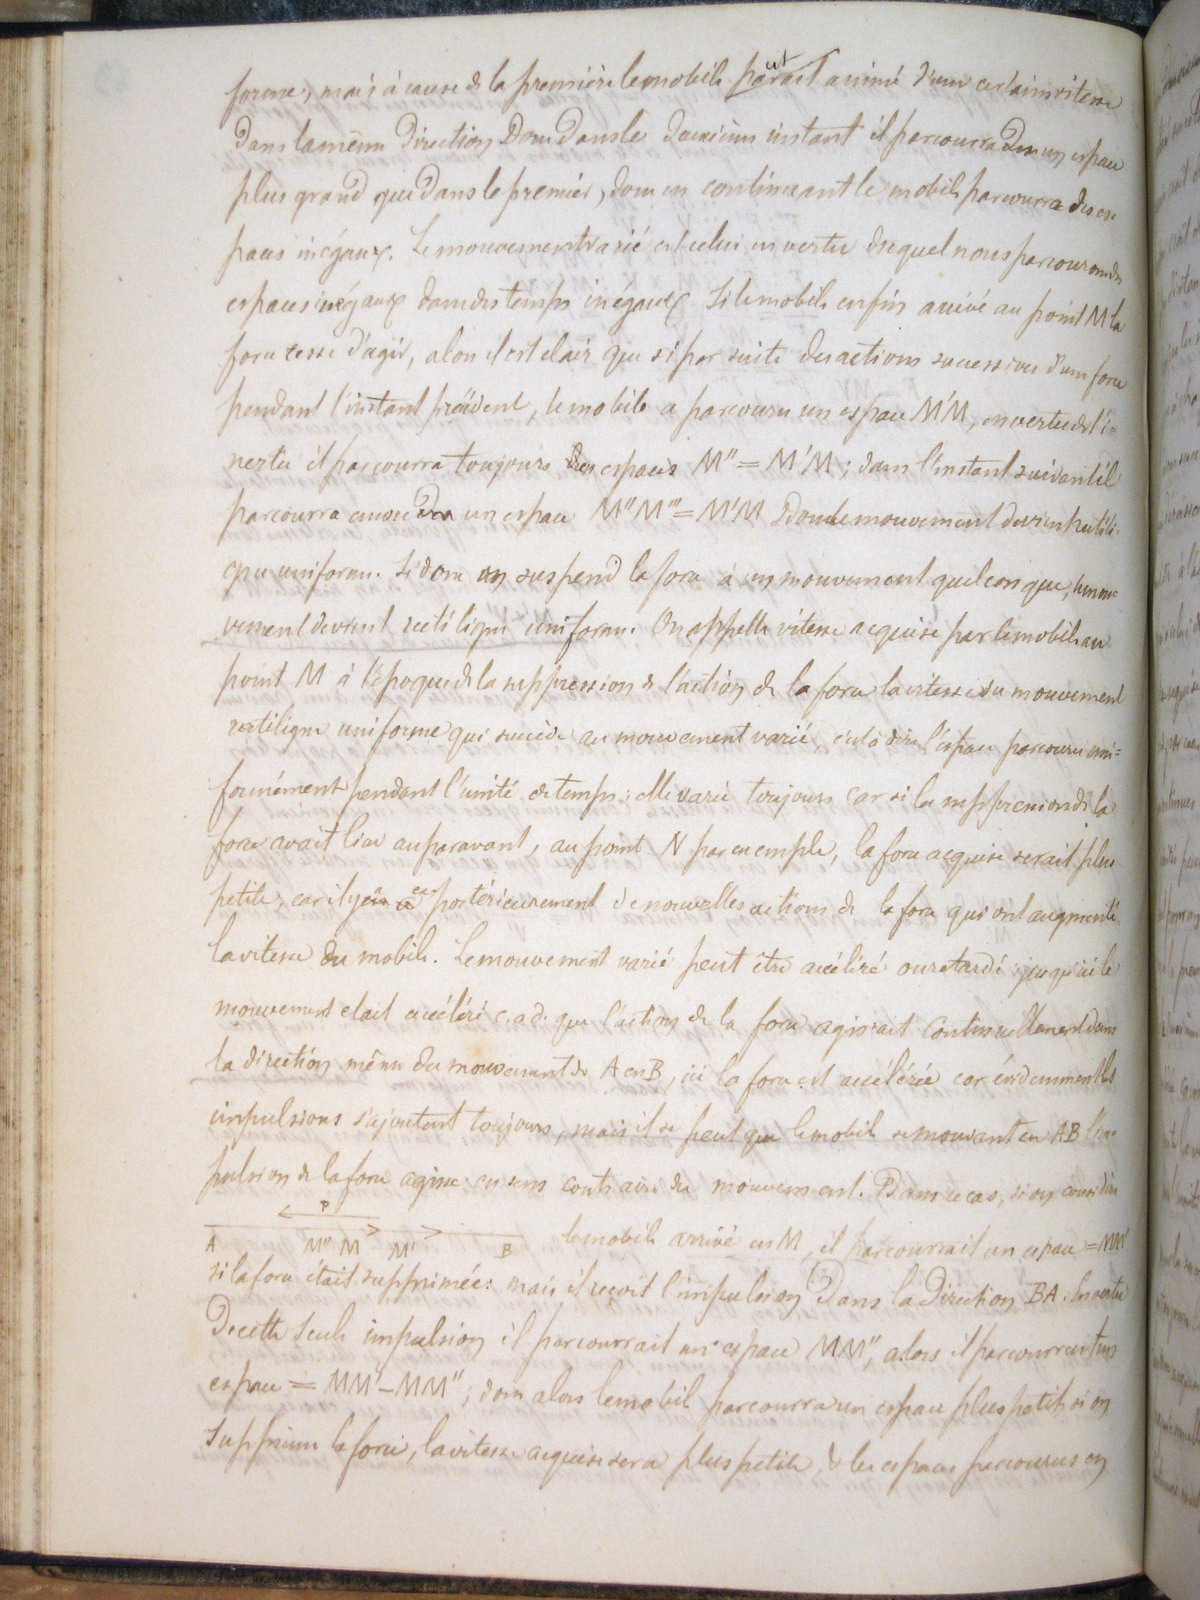 forme, mais à cause de la première le mobile parait ut animé d'une certaine vitesse
dans la même direction Donc dans le deuxième instant il parcourra un espace
plus grand que dans le premier, donc en continuant le mobile parcourra des es-
paces inégaux. Le mouvement varié est celui en vertu duquel nous parcourons des
espaces inégaux dans des temps inégaux. Si le mobile enfin arrivé au point M la
force cesse d'agir, alors il est clair que si par suite des actions successives d'une force
pendant l'instant précédent, le mobile a parcouru un espace M'M, en vertu de l'i=
nertie il parcourra toujours des espaces M" = M'M ; dans l'instant suivant il
parcourra encore un espace M"M''' = M'M Donc le mouvement devient rectili-
gne uniforme. Si donc on suspend la force à un mouvement quelconque, le mou-
vement devient rectiligne uniforme. On appelle vitesse acquise par le mobile au
point M à l'époque de la suppression de l'action de la force la vitesse du mouvement
rectiligne uniforme qui succède au mouvement varié, c'est à dire l'espace parcouru uni=
formément pendant l'unité de temps ; elle varie toujours car si la suppression de la
force avait lieu auparavant, au point N par exemple, la force acquise serait plus
petite, car il y a eu postérieurement de nouvelles actions de la force qui ont augmenté
la vitesse du mobile. Le mouvement varié peut être accéléré ou retardé jusqu'ici le
mouvement etait accéléré c. a d. que l'action de la force agissait continuellement dans
la direction même du mouvement de A en B, ici la force est accélérée car évidemment les
impulsions s'ajoutent toujours, mais il se peut que le mobile se mouvant en AB l'im
pulsion de la force agisse en sens contraire du mouvement. Dans ce cas, si on considère
P
A M" M M' B
le mobile arrivé en M, il parcourrait un espace = MM'
si la force était supprimée: mais il reçoit l'impulsion Dans la Direction BA. En vertu
De cette seule impulsion il parcourrait un espace MM", alors il parcourrait un
espace = MM' – MM" ; donc alors le mobile parcourra un espace plus petit si on
supprime la force, la vitesse acquise sera plus petite, & les espaces parcourus en